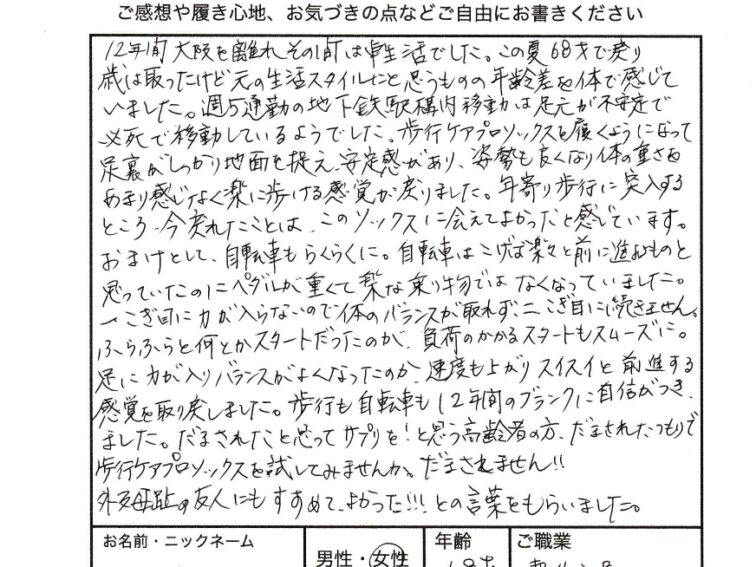 ご感想や履き心地、お気づきの点などご自由にお書きください
12年間大阪を離れその間は車生活でした。この夏68才で戻り
歳は取ったけど元の生活スタイルにと思うものの年齢差を体で感じて
いました。週5通勤の地下鉄駅構内移動は足元が不安定で
必死で移動しているようでした。歩行ケアプロソックスを履くようになって
足裏がしっかり地面を捉え、安定感があり、姿勢も良くなり体の重さを
あまり感じなく楽に歩ける感覚が戻りました。年寄り歩行に突入する
ところ、今戻れたことは、このソックスに会えてよかったと感じています。
おまけとして、自転車もらくらくに。自転車はこげば楽々と前に進むものと
思っていたのにペダルが重くて楽な乗り物ではなくなっていました。
一こぎ目に力が入らないので体のバランスが取れず、二こぎ目に続きません。
ふらふらと何とかスタートだったのが、負荷のかかるスタートもスムーズに。
足に力が入りバランスがよくなったのか、速度も上がりスイスイと前進する
感覚を取り戻しました。歩行も自転車も12年間のブランクに自信がつき
ました。だまされたと思ってサプリを!と思う高齢者の方、だまされたつもりで
歩行ケアプロソックスを試してみませんか。だまされません!!
外反母趾の友人にもすすめて、よかった!!!との言葉をもらいました。
お名前・ニックネーム
男性・女性
年齢
ご職業